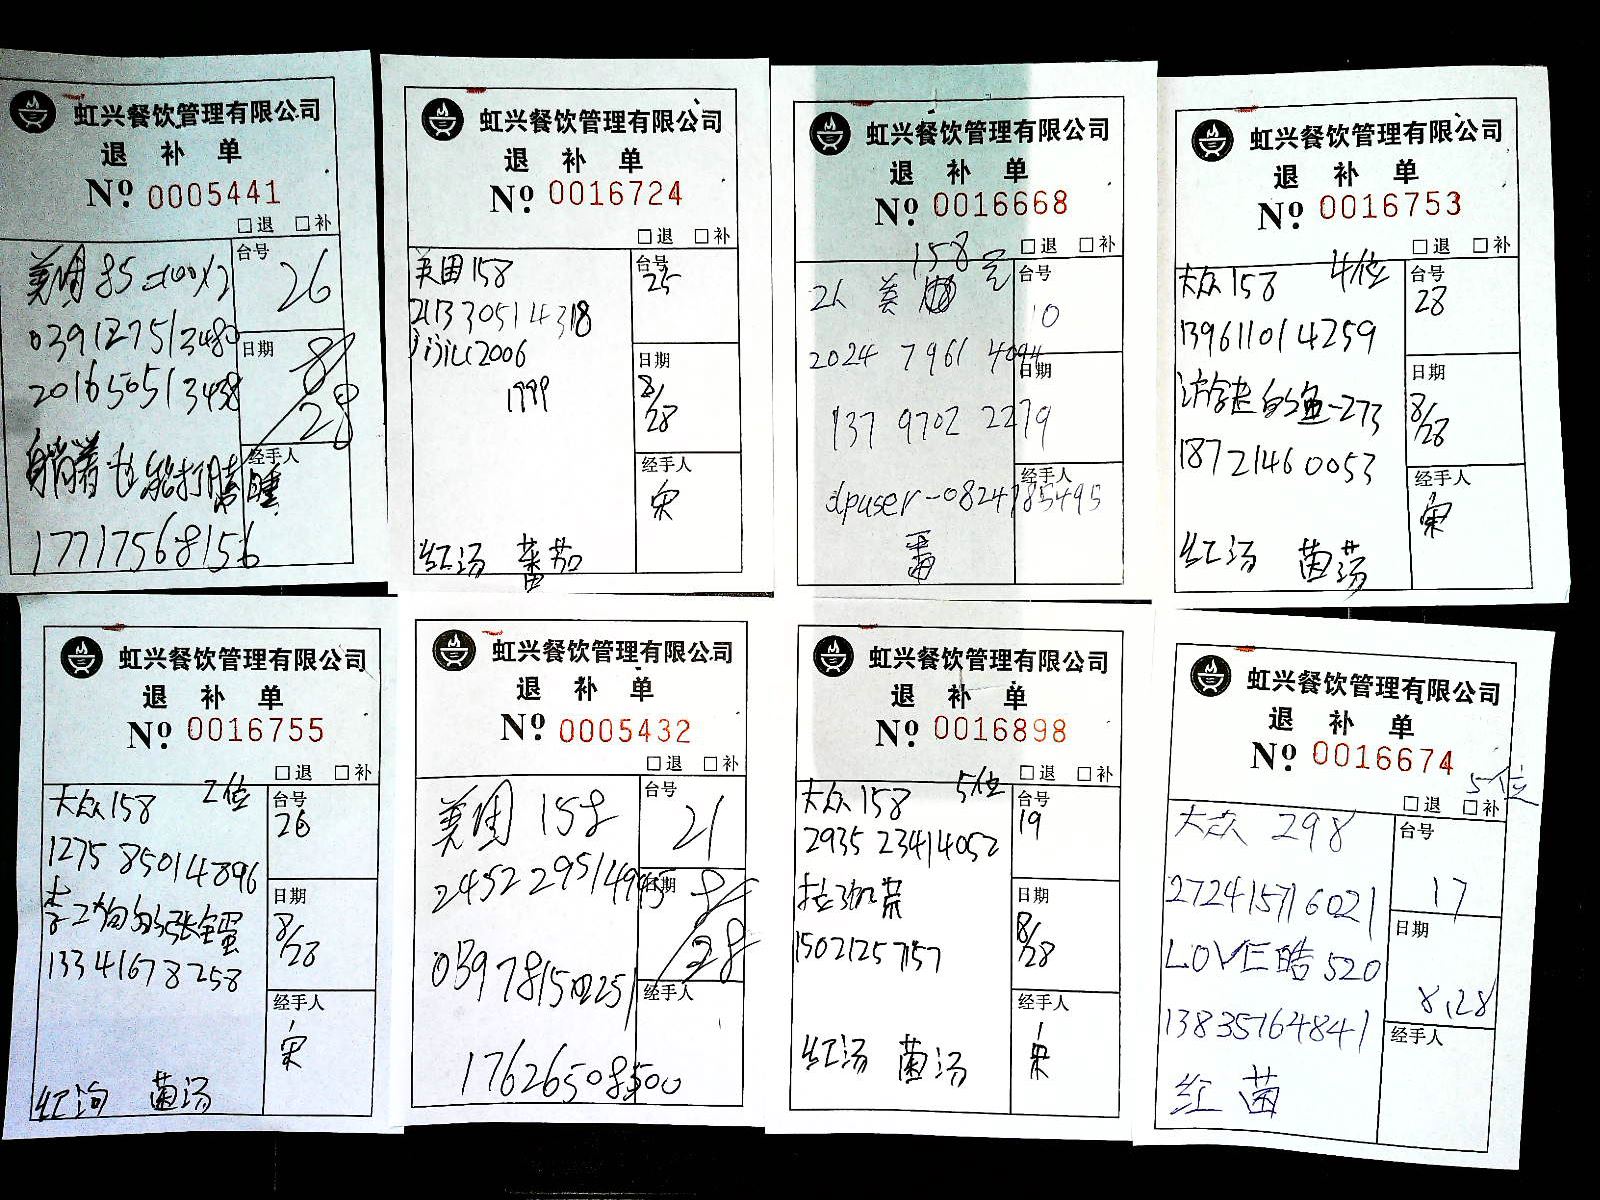 虹兴餐饮管理有限公司
退 补 单
Nº 0005441
□退 □补
美团85=100x2
台号
26
039127513480
日期
8/28
201650513438
经手人
躺着也能打瞌睡
17717568156
虹兴餐饮管理有限公司
退 补 单
Nº 0016724
□退 □补
美团158
台号
25
213330514318
2006
1999
日期
8/28
经手人
宋
红汤 番茄
虹兴餐饮管理有限公司
退 补 单
Nº 0016668
□退 □补
158元
2人 美团
台号
10
2024 7961 4094
日期
137 9702 2279
经手人
dpuser-0824785495
番
虹兴餐饮管理有限公司
退 补 单
Nº 0016753
□退 □补
大众158 4位
台号
28
139611014259
日期
8/28
-273
18721460053
经手人
宋
红汤 菌汤
虹兴餐饮管理有限公司
退 补 单
Nº 0016755
□退 □补
大众158 2位
台号
26
1275 85014896
日期
8/28
13341678258
经手人
宋
红汤 菌汤
虹兴餐饮管理有限公司
退 补 单
Nº 0005432
□退 □补
美团 158
台号
21
日期
8/28
经手人
17626508500
虹兴餐饮管理有限公司
退 补 单
Nº 0016898
□退 □补
大众158 5位
台号
19
2935 23414052
日期
8/28
15021257157
经手人
宋
红汤 菌汤
虹兴餐饮管理有限公司
退 补 单
Nº 0016674
5位
□退 □补
大众 298
台号
17
272415716021
日期
8.28
LOVE皓520
13835764841
经手人
红 菌